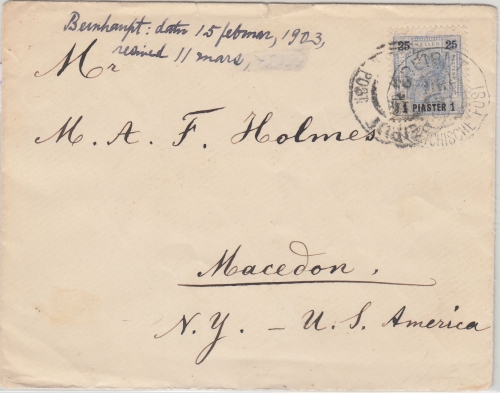 Bernhaupt: datu 15 februar, 1903,
resived 11 mars,
Mr
M. A. F. Holmes
Macedon,
N.Y. - U.S. America
25 25
1 PIASTER 1
POST